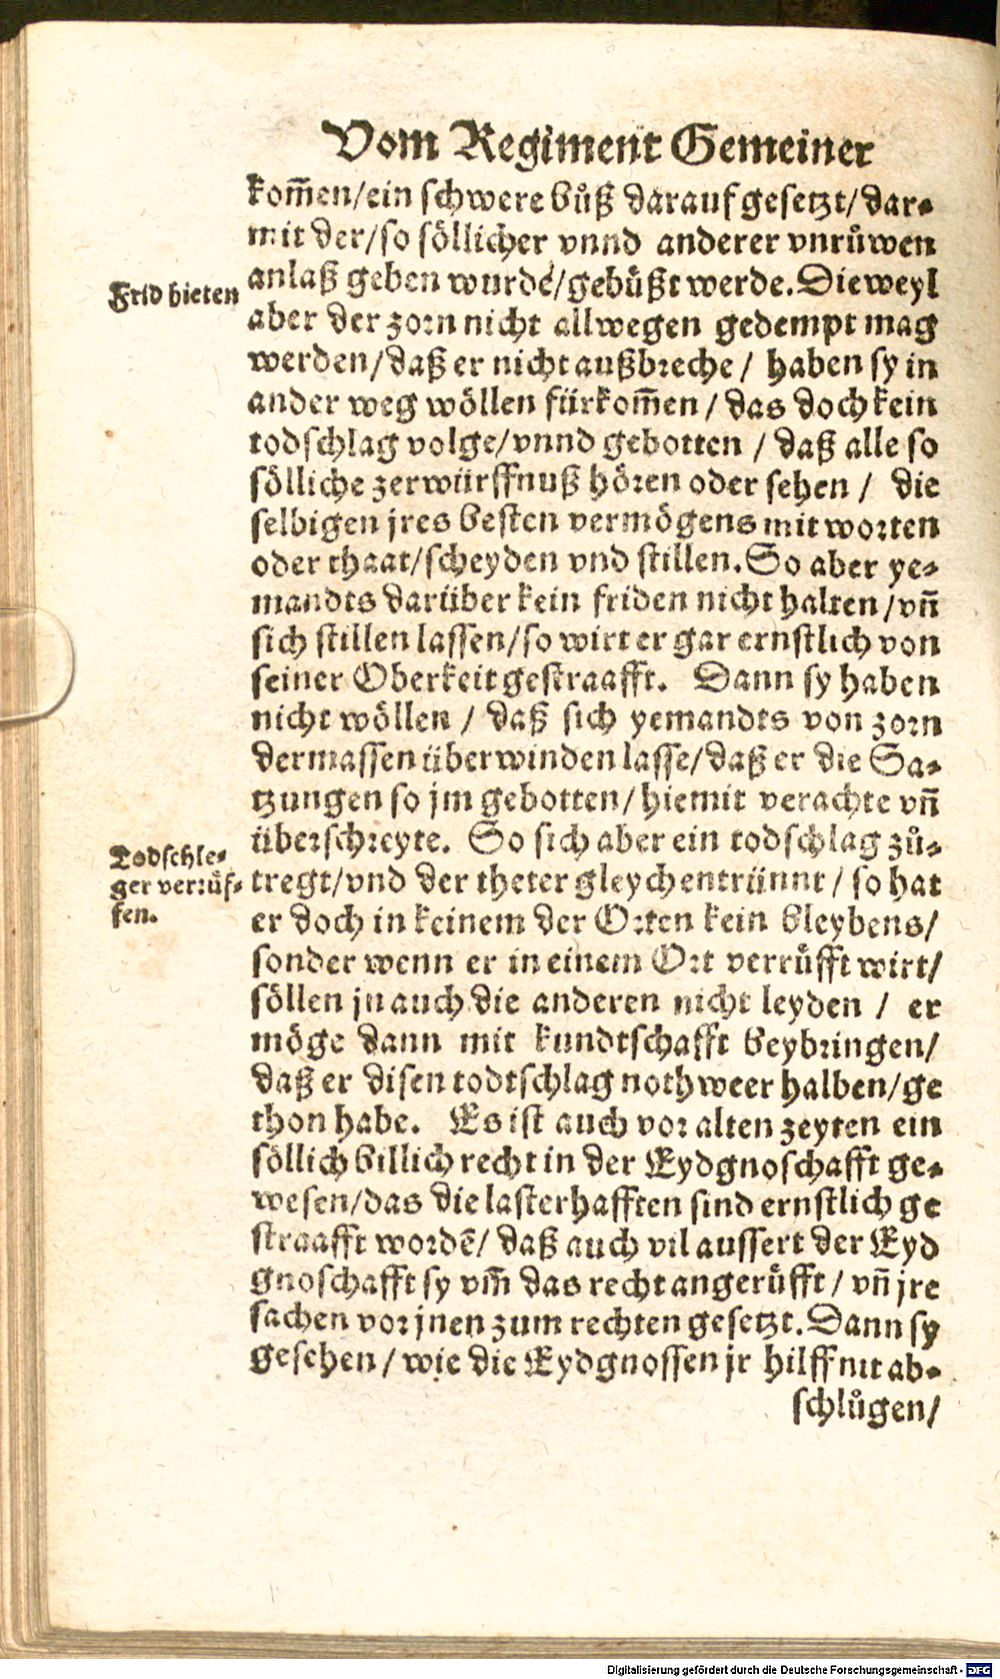 Vom Regiment Gemeiner
kom̃en/ein schwere bůß darauf gesetzt/dar-
mit der/so söllicher vnnd anderer vnrůwen
Frid bieten
anlaß geben wurdē/gebüßt werde. Dieweyl
aber der zorn nicht allwegen gedempt mag
werden/daß er nicht außbreche / haben sy in
ander weg wöllen fürkom̃en / das doch kein
todschlag volge/vnnd gebotten / daß alle so
sölliche zerwürffnuß hören oder sehen / die
selbigen jres besten vermögens mit worten
oder thaat/scheyden vnd stillen. So aber ye-
mandts darüber kein friden nicht halten /vñ
sich stillen lassen/so wirt er gar ernstlich von
seiner Oberkeit gestraafft. Dann sy haben
nicht wöllen / daß sich yemandts von zorn
dermassen überwinden lasse/daß er die Sa-
tzungen so jm gebotten/hiemit verachte vñ
überschreyte. So sich aber ein todschlag zů-
Todschle-
ger verrüf-
fen.
tregt/vnd der theter gleych entrünnt / so hat
er doch in keinem der Orten kein bleybens/
sonder wenn er in einem Ort verrüfft wirt/
söllen jn auch die anderen nicht leyden / er
möge dann mit kundtschafft beybringen/
daß er disen todtschlag nothweer halben/ge
thon habe. Es ist auch vor alten zeyten ein
söllich billich recht in der Eydgnoschafft ge-
wesen/das die lasterhafften sind ernstlich ge
straafft wordē/ daß auch vil aussert der Eyd
gnoschafft sy vm̃ das recht angerüfft / vñ jre
sachen vor jnen zum rechten gesetzt. Dann sy
gesehen / wie die Eydgnossen jr hilff nit ab-
schlůgen/
Digitalisierung gefördert durch die Deutsche Forschungsgemeinschaft - DFG